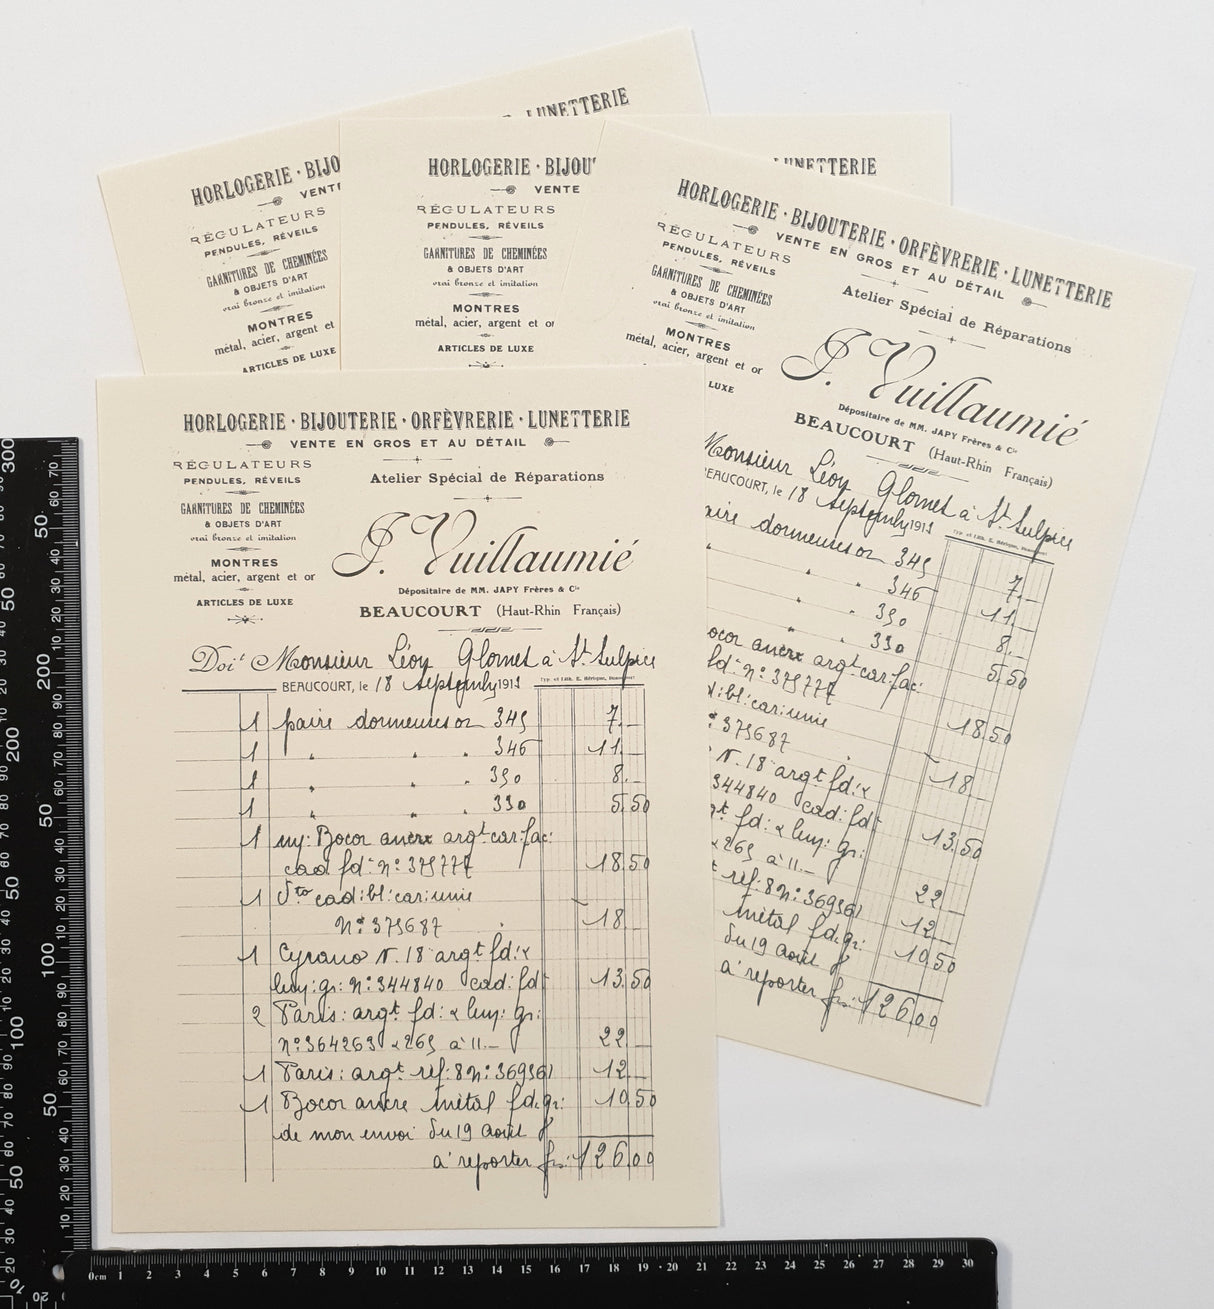 LUNETTERIE
HORLOGERIE · BIJO
VENT
RÉGULATEURS
PENDULES, RÉVEILS
GARNITURES DE CHEMINÉES
& OBJETS D'ART
vrai bronze et imitation
MONTRES
métal, acier, argent et
ARTICLES DE LUXE
HORLOGERIE · BIJOU
LUNETTERIE
VENTE
RÉGULATEURS
PENDULES, RÉVEILS
GARNITURES DE CHEMINÉES
& OBJETS D'ART
vrai bronze et imitation
MONTRES
métal, acier, argent et or
ARTICLES DE LUXE
HORLOGERIE · BIJOUTERIE · ORFÈVRERIE · LUNETTERIE
VENTE EN GROS ET AU DÉTAIL
RÉGULATEURS
PENDULES, RÉVEILS
GARNITURES DE CHEMINÉES
& OBJETS D'ART
vrai bronze et imitation
MONTRES
métal, acier, argent et or
LUXE
Atelier Spécial de Réparations
J. Vuillaumié
Dépositaire de MM. JAPY Frères & Cie
BEAUCOURT (Haut-Rhin Français)
Monsieur Léon Glornet à St Sulpice
BEAUCOURT, le 18 1911
aire dormeuses or 345 7.—
346 11.—
350 8.—
330 5.50
ocor ancre argt car: fac:
fd: n: 375777 18.50
bl: car: unie
375687 18
N. 18 argt fd: &
344840 cad: fdt 13.50
fd: & luy: gr:
& 265 à 11.— 22
ref: 8 n: 369361 12
métal fd. gr: 10.50
du 19 août
à reporter frs: 126.00
HORLOGERIE · BIJOUTERIE · ORFÈVRERIE · LUNETTERIE
VENTE EN GROS ET AU DÉTAIL
RÉGULATEURS
PENDULES, RÉVEILS
GARNITURES DE CHEMINÉES
& OBJETS D'ART
vrai bronze et imitation
MONTRES
métal, acier, argent et or
ARTICLES DE LUXE
Atelier Spécial de Réparations
J. Vuillaumié
Dépositaire de MM. JAPY Frères & Cie
BEAUCOURT (Haut-Rhin Français)
Doit Monsieur Léon Glornet à St Sulpice
BEAUCOURT, le 18 1911
1 paire dormeuses or 345 7.—
1 " " " 346 11.—
1 " " " 350 8.—
1 " " " 330 5.50
1 Bocor ancre argt car: fac:
cad fd: n: 375777 18.50
1 Dto cad: bl: car: unie
N: 375687 18
1 Cyrano N. 18 argt fd: &
luy: gr: n: 344840 cad: fdt 13.50
2 Paris: argt fd: & luy: gr:
n: 364263 & 265 à 11.— 22
1 Paris: argt ref: 8 n: 369361 12
1 Bocor ancre métal fd. gr: 10.50
de mon envoi du 19 août
à reporter frs: 126.00
0cm 1 2 3 4 5 6 7 8 9 10 11 12 13 14 15 16 17 18 19 20 21 22 23 24 25 26 27 28 29 30